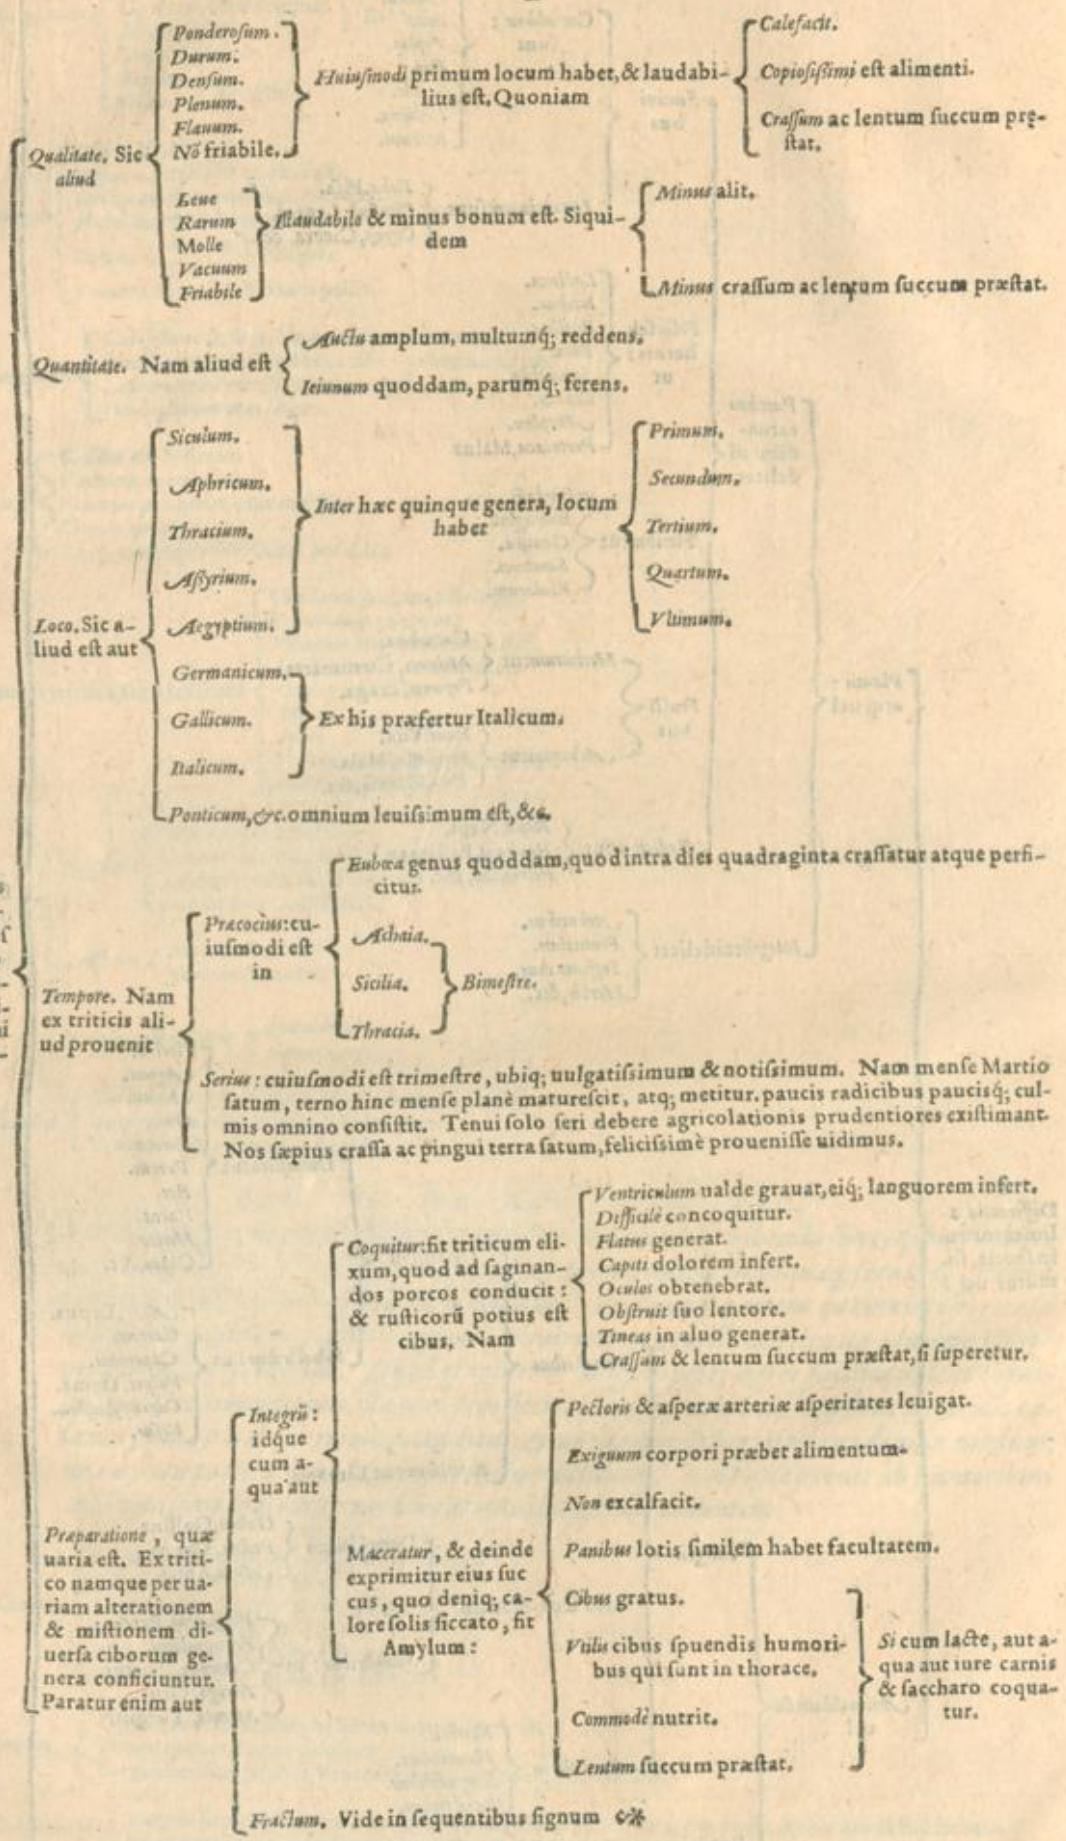 Qualitate. Sic
aliud
Ponderoſum.
Durum.
Denſum.
Plenum.
Flauum.
Nõ friabile.
Huiuſmodi primum locum habet, & laudabi-
lius eſt. Quoniam
Calefacit.
Copioſiſsimi eſt alimenti.
Craſſum ac lentum ſuccum prę-
ſtat.
Leue
Rarum
Molle
Vacuum
Friabile
Illaudabile & minus bonum eſt. Siqui-
dem
Minus alit.
Minus craſſum ac lentum ſuccum præſtat.
Quantitate. Nam aliud eſt
Auctu amplum, multumq́; reddens.
Ieiunum quoddam, parumq́; ferens.
Loco. Sic a-
liud eſt aut
Siculum.
Aphricum.
Thracium.
Aſſyrium.
Aegyptium.
Inter hæc quinque genera, locum
habet
Primum.
Secundum.
Tertium.
Quartum.
Vltimum.
Germanicum.
Gallicum.
Italicum.
Ex his præfertur Italicum.
Ponticum, &c. omnium leuiſsimum eſt, &c.
Tempore. Nam
ex triticis ali-
ud prouenit
Præcocius: cu-
iuſmodi eſt
in
Eubœa genus quoddam, quod intra dies quadraginta craſſatur atque perfi-
citur.
Achaia.
Sicilia.
Thracia.
Bimeſtre.
Serius: cuiuſmodi eſt trimeſtre, ubiq; uulgatiſsimum & notiſsimum. Nam menſe Martio
ſatum, terno hinc menſe planè matureſcit, atq; metitur. paucis radicibus paucisq́; cul-
mis omnino conſiſtit. Tenui ſolo ſeri debere agricolationis prudentiores exiſtimant.
Nos ſæpius craſſa ac pingui terra ſatum, feliciſsimè proueniſſe uidimus.
Præparatione, quæ
uaria eſt. Ex triti-
co namque per ua-
riam alterationem
& miſtionem di-
uerſa ciborum ge-
nera conficiuntur.
Paratur enim aut
Integrũ:
idque
cum a-
qua aut
Coquitur: fit triticum eli-
xum, quod ad ſaginan-
dos porcos conducit:
& ruſticorũ potius eſt
cibus. Nam
Ventriculum ualde grauat, eiq́; languorem infert.
Difficilè concoquitur.
Flatus generat.
Capiti dolorem infert.
Oculos obtenebrat.
Obſtruit ſuo lentore.
Tineas in aluo generat.
Craſſum & lentum ſuccum præſtat, ſi ſuperetur.
Maceratur, & deinde
exprimitur eius ſuc
cus, quo deniq; ca-
lore ſolis ſiccato, fit
Amylum:
Pectoris & aſperæ arteriæ aſperitates leuigat.
Exiguum corpori præbet alimentum.
Non excalfacit.
Panibus lotis ſimilem habet facultatem.
Cibus gratus.
Vtilis cibus ſpuendis humori-
bus qui ſunt in thorace.
Commodè nutrit.
Lentum ſuccum præſtat.
Si cum lacte, aut a-
qua aut iure carnis
& ſaccharo coqua-
tur.
Fractum. Vide in ſequentibus ſignum